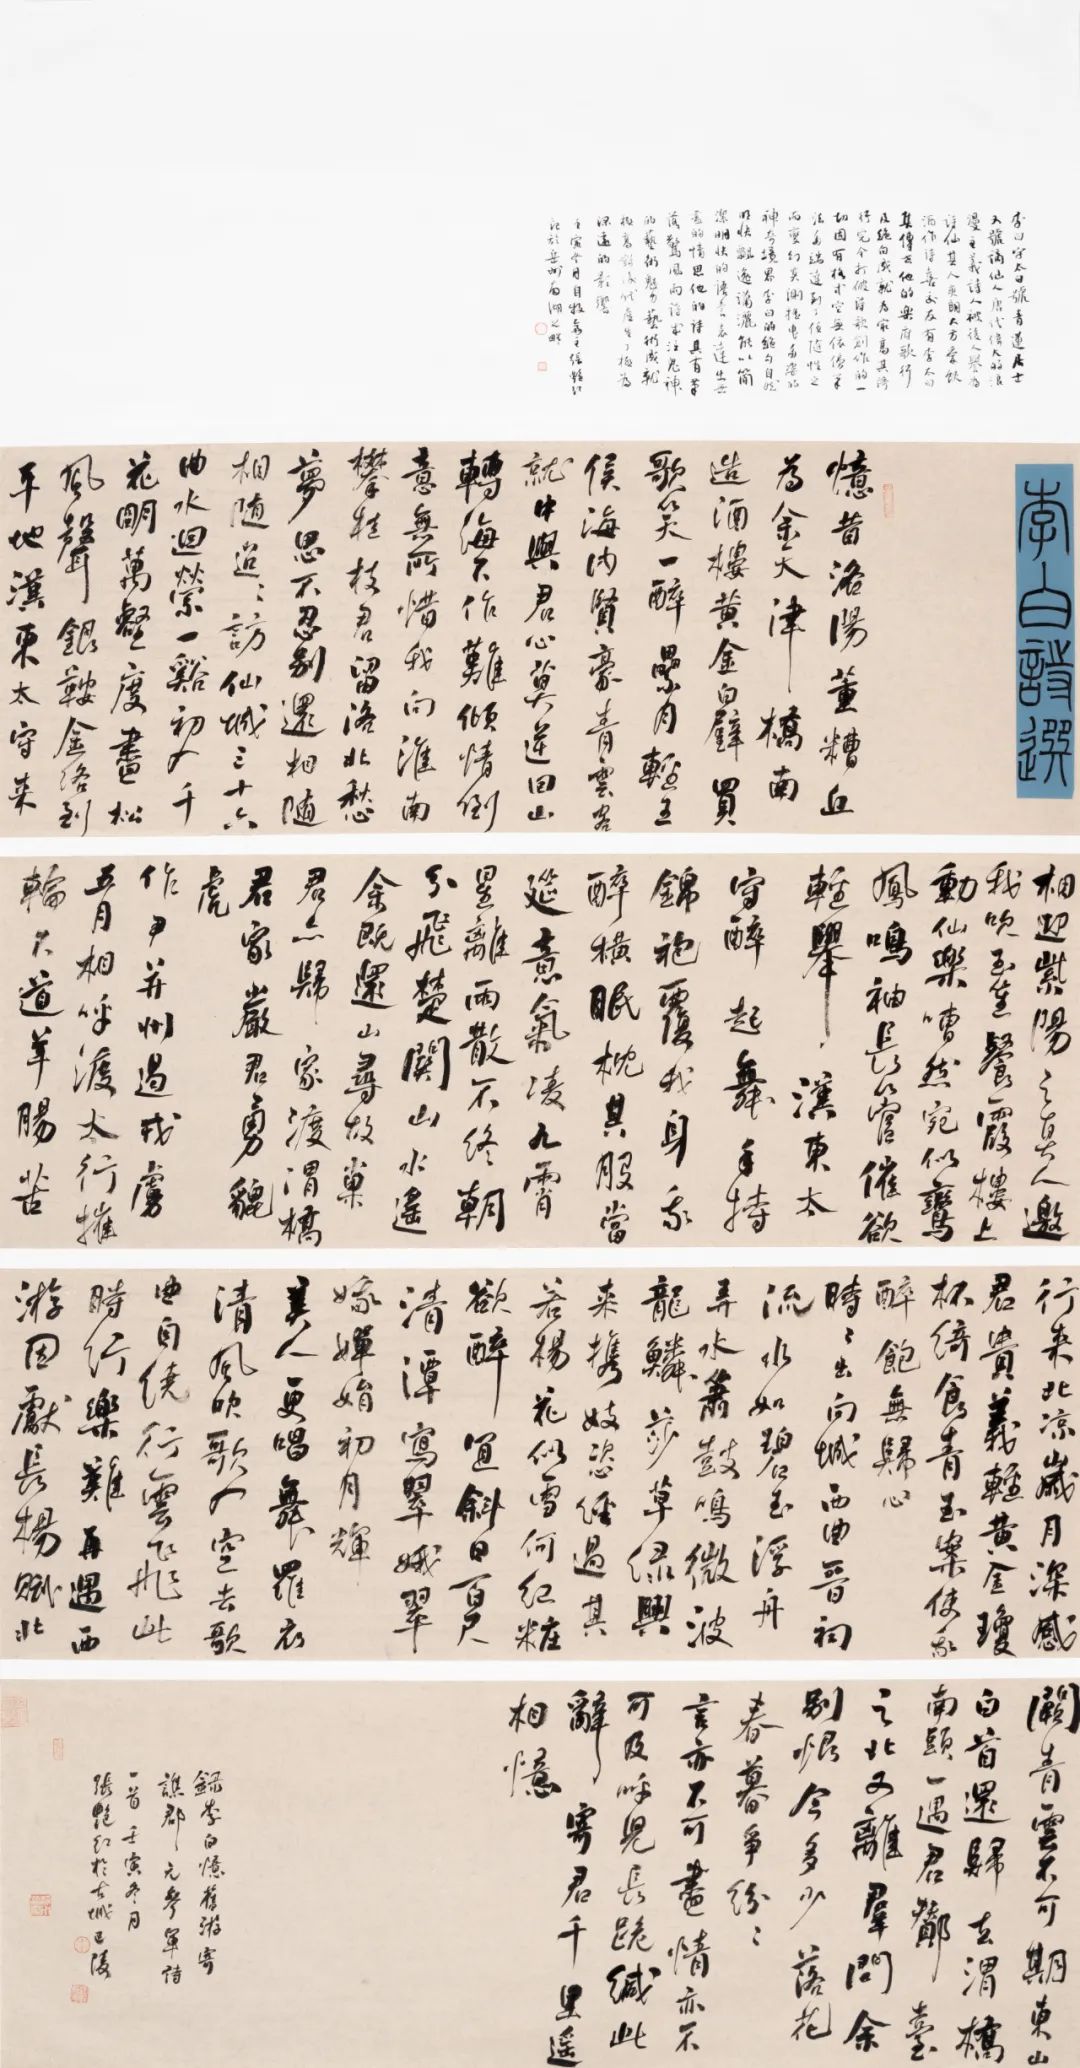 李白字太白號青蓮居士
又號謫仙人唐代偉大的浪
漫主義詩人被後人譽為
詩仙其人爽朗大方愛飲
酒作詩喜交友有李太白
集傳世他的樂府歌行
及絕句成就為最高其歌
行完全打破詩歌創作的一
切固有格式空無依傍筆
法多端達到了任隨性之
而變幻莫測搖曳多姿的
神奇境界李白的絕句自然
明快飄逸瀟灑能以簡
潔明快的語言表達出無
盡的情思他的詩具有筆
落驚風雨詩成泣鬼神
的藝術魅力藝術成就
極高對後代產生了極為
深遠的影響
壬寅冬月張艷紅
記於岳州南湖之畔
李白詩選
憶昔洛陽董糟丘
為余天津橋南
造酒樓黃金白璧買
歌笑一醉累月輕王
侯海內賢豪青雲客
就中與君心莫逆回山
轉海不作難傾情倒
意無所惜我向淮南
攀桂枝君留洛北愁
夢思不忍別還相隨
相隨迢迢訪仙城三十六
曲水迴縈一谿初入千
花明萬壑度盡松
風聲銀鞍金絡到
平地漢東太守來
相迎紫陽之真人邀
我吹玉笙餐霞樓上
動仙樂嘈然宛似鸞
鳳鳴袖長管催欲
輕舉漢東太
守醉起舞手持
錦袍覆我身我
醉橫眠枕其股當
筵意氣凌九霄
星離雨散不終朝
分飛楚關山水遙
余既還山尋故巢
君亦歸家渡渭橋
君家嚴君勇貔
虎
作尹并州遏戎虜
五月相呼渡太行摧
輪不道羊腸苦
行來北涼歲月深感
君貴義輕黃金瓊
杯綺食青玉案使我
醉飽無歸心
時時出向城西曲晉祠
流水如碧玉浮舟
弄水簫鼓鳴微波
龍鱗莎草綠興
來攜妓恣經過其
若楊花似雪何紅粧
欲醉宜斜日百尺
清潭寫翠娥翠
娥嬋娟初月輝
美人更唱舞羅衣
清風吹歌入空去歌
曲自繞行雲飛此
時行樂難再遇西
游因獻長楊賦北
闕青雲不可期東山
白首還歸去渭橋
南頭一遇君酇臺
之北又離群問余
別恨今多少落花
春暮爭紛紛
言亦不可盡情亦不
可及呼兒長跪緘此
辭寄君千里遙
相憶
錄李白憶舊游寄
譙郡元參軍詩
一首壬寅冬月
張艷紅於古城巴陵